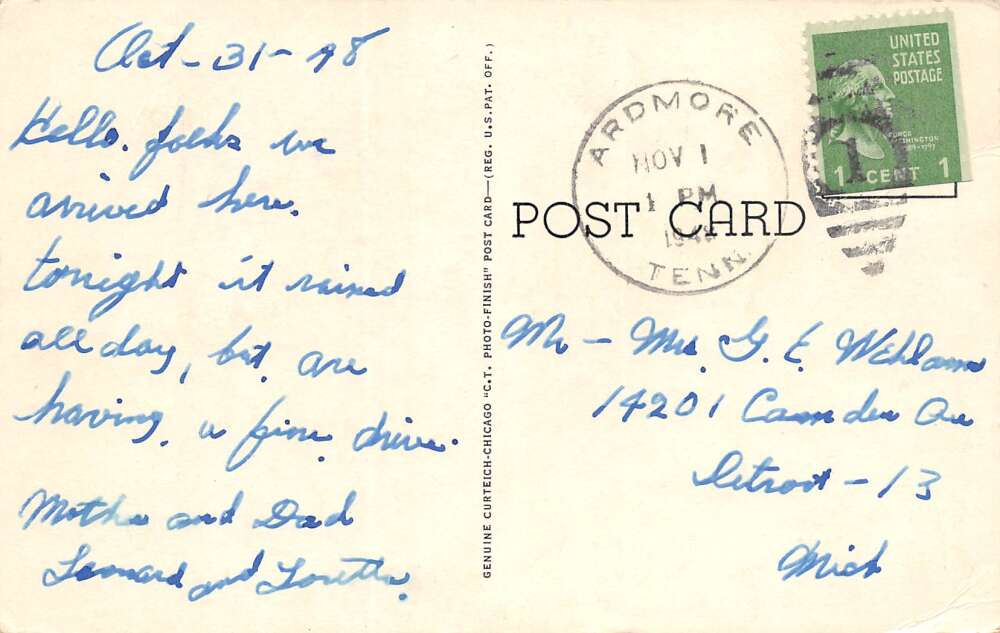 Oct - 31 - 48
Hello. folks we
arrived here.
tonight it rained
all day, but are
having a fine drive.
Mother and Dad
Leonard and Loretta.
GENUINE CURTEICH-CHICAGO "C.T. PHOTO-FINISH" POST CARD—(REG. U.S. PAT. OFF.)
UNITED
STATES
POSTAGE
WASHINGTON
1 CENT 1
ARDMORE
NOV 1
1 PM
TENN.
POST CARD
Mr - Mrs. G. E.
14201 Camden Ave
Detroit - 13
Mich